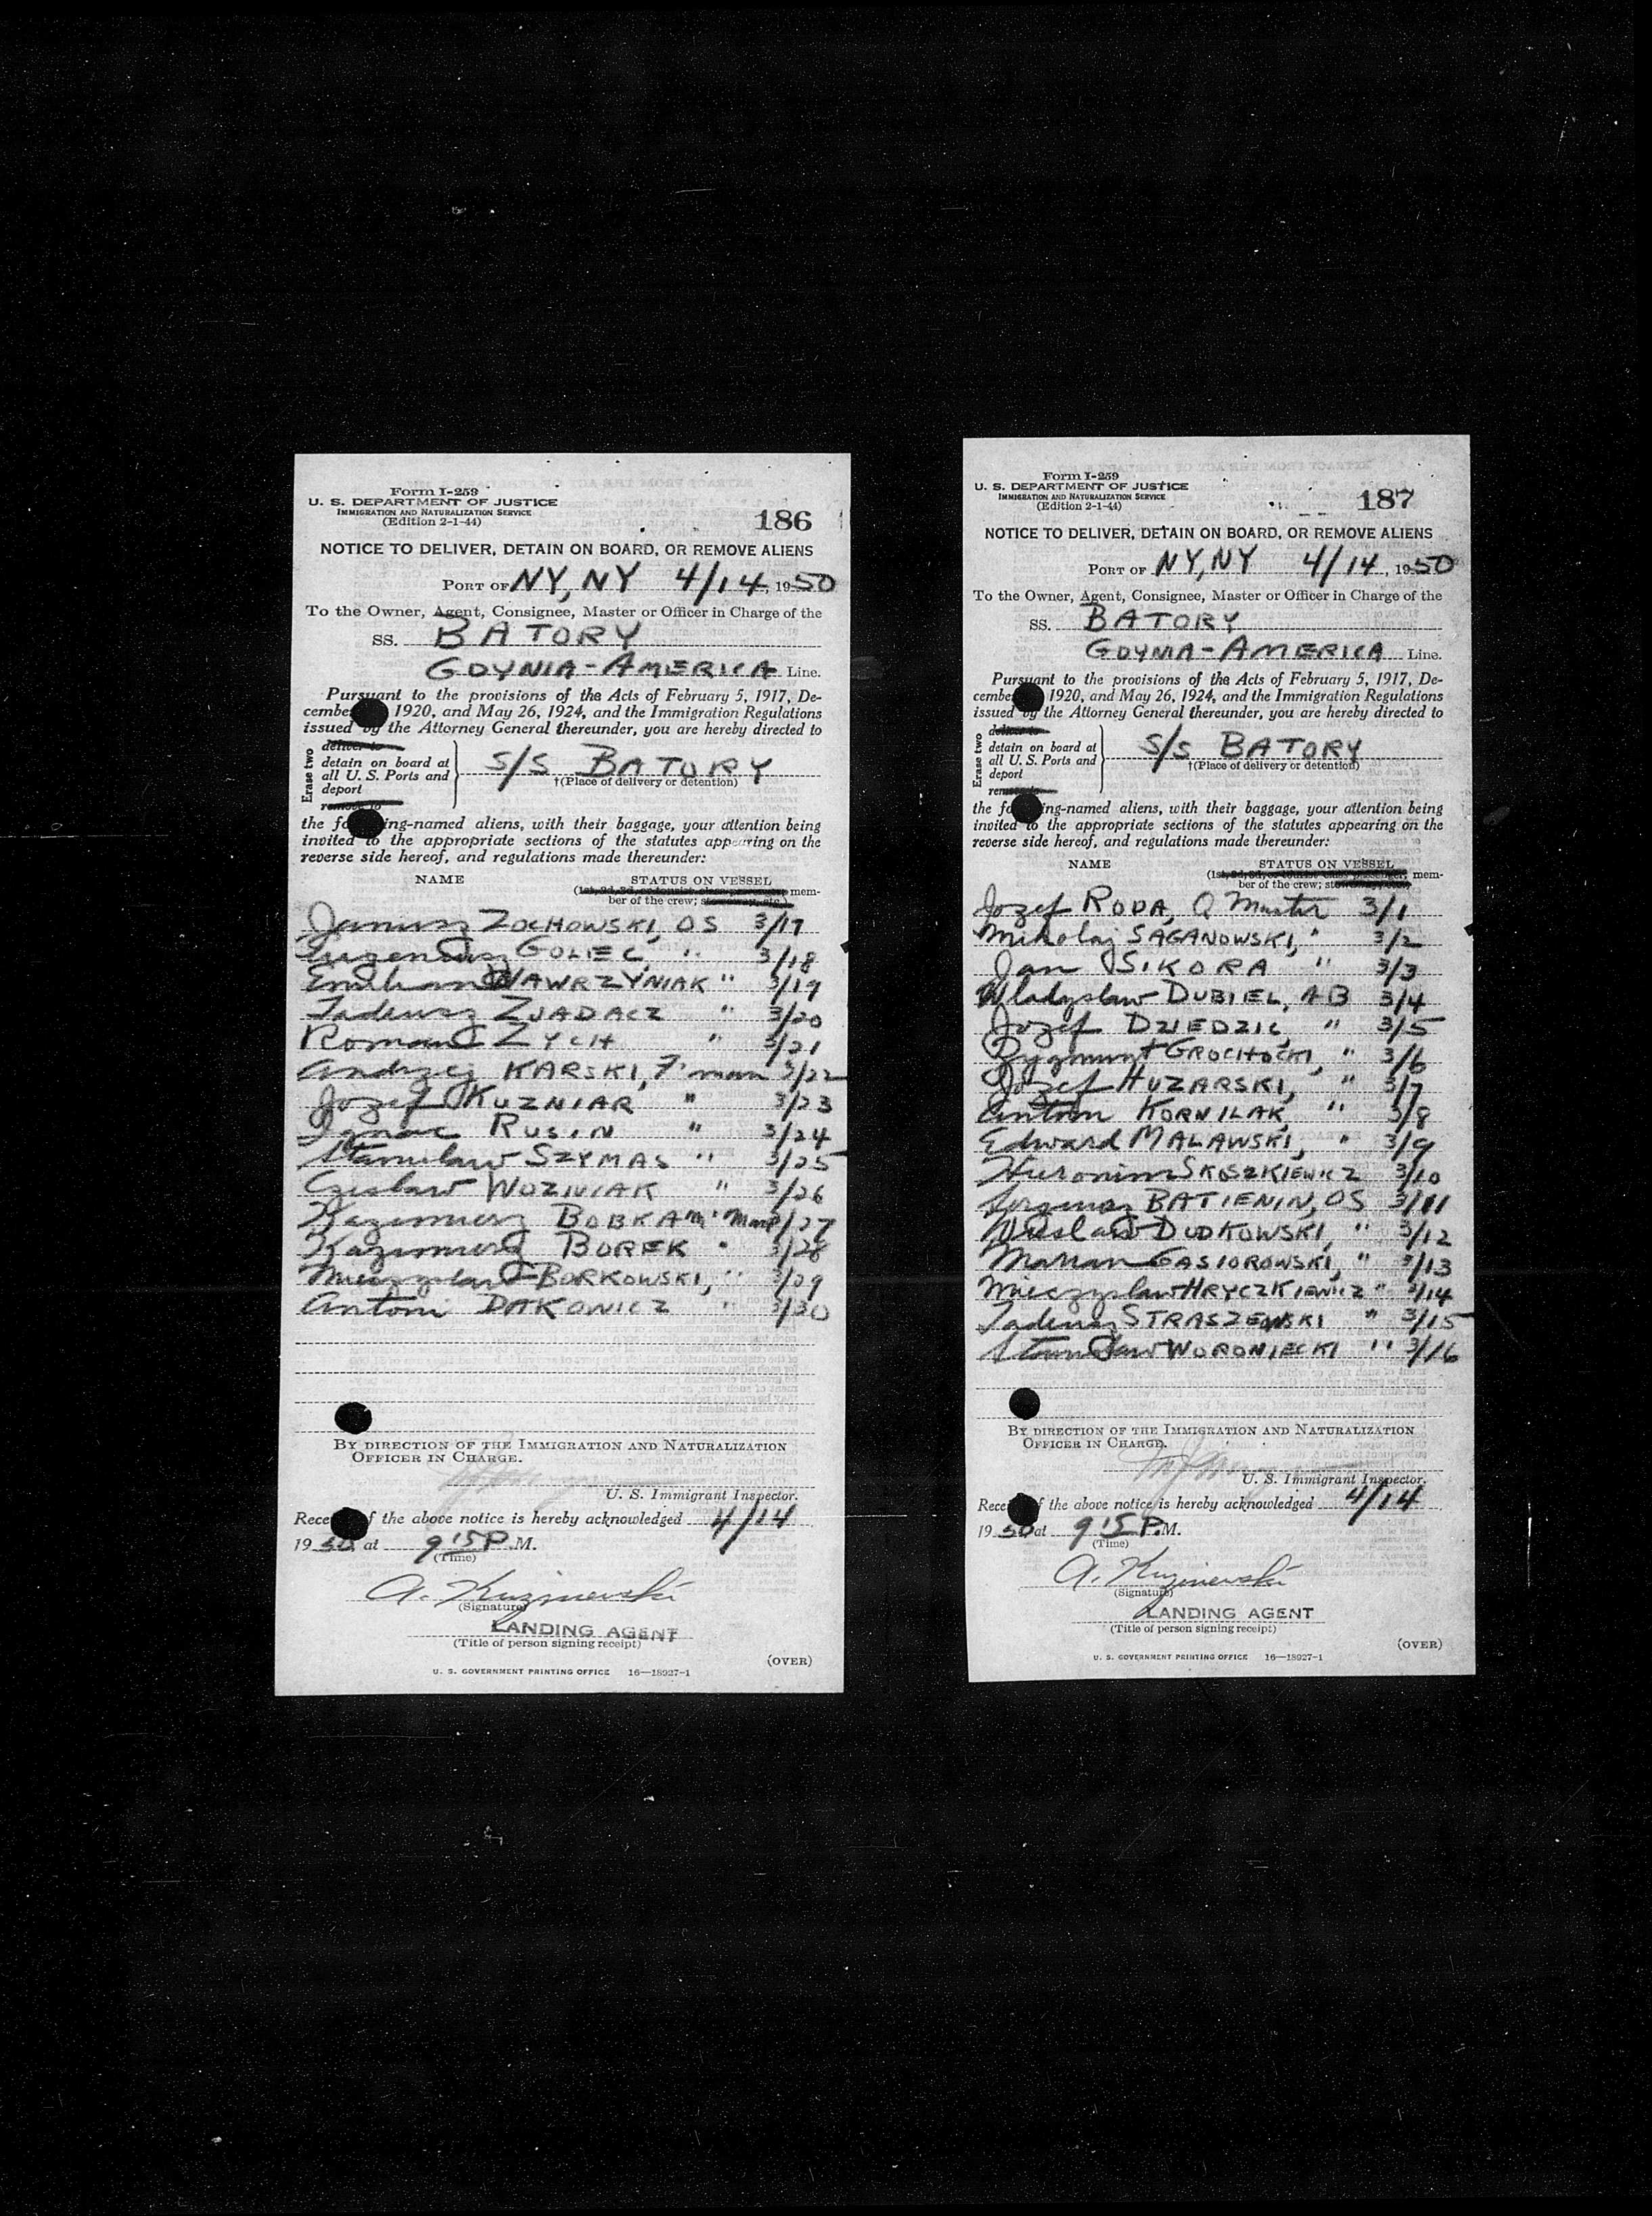 Form I-259
U. S. DEPARTMENT OF JUSTICE
IMMIGRATION AND NATURALIZATION SERVICE
(Edition 2-1-44)
186
NOTICE TO DELIVER, DETAIN ON BOARD, OR REMOVE ALIENS
PORT OF NY, NY 4/14, 1950
To the Owner, Agent, Consignee, Master or Officer in Charge of the
SS. BATORY
GDYNIA-AMERICA Line.
Pursuant to the provisions of the Acts of February 5, 1917, De-
cember 1920, and May 26, 1924, and the Immigration Regulations
issued by the Attorney General thereunder, you are hereby directed to
Erase two
deliver to
detain on board at
all U. S. Ports and
deport
remove to
S/S BATORY
†(Place of delivery or detention)
the following-named aliens, with their baggage, your attention being
invited to the appropriate sections of the statutes appearing on the
reverse side hereof, and regulations made thereunder:
NAME STATUS ON VESSEL
(1st, 2d, 3d, or tourist class passenger; mem-
ber of the crew; stowaway, etc.)
Janusz ZOCHOWSKI, OS 3/17
Eugeniusz GOLIEC, " 3/18
Emilian WAWRZYNIAK " 3/19
Tadeusz ZWADACZ " 3/20
Roman ZYCH " 3/21
Andrzej KARSKI, F'man 3/22
Jozef KUZNIAR " 3/23
Ignac RUSIN " 3/24
Stanislaw SZYMAS " 3/25
Czeslaw WOZNIAK " 3/26
Kazimierz BOBKA 3/27
Kazimierz BOREK " 3/28
Mieczyslaw BORKOWSKI, " 3/29
Antoni DAKOWICZ " 3/30
BY DIRECTION OF THE IMMIGRATION AND NATURALIZATION
OFFICER IN CHARGE.
U. S. Immigrant Inspector.
Receipt of the above notice is hereby acknowledged 4/14
1950 at 9 15 P.M.
(Time)
A. Kuzniewski
(Signature)
LANDING AGENT
(Title of person signing receipt)
(OVER)
U. S. GOVERNMENT PRINTING OFFICE 16—18927-1
Form I-259
U. S. DEPARTMENT OF JUSTICE
IMMIGRATION AND NATURALIZATION SERVICE
(Edition 2-1-44)
187
NOTICE TO DELIVER, DETAIN ON BOARD, OR REMOVE ALIENS
PORT OF NY, NY 4/14, 1950
To the Owner, Agent, Consignee, Master or Officer in Charge of the
SS. BATORY
GDYNIA-AMERICA Line.
Pursuant to the provisions of the Acts of February 5, 1917, De-
cember 1920, and May 26, 1924, and the Immigration Regulations
issued by the Attorney General thereunder, you are hereby directed to
Erase two
deliver to
detain on board at
all U. S. Ports and
deport
remove to
S/S BATORY
†(Place of delivery or detention)
the following-named aliens, with their baggage, your attention being
invited to the appropriate sections of the statutes appearing on the
reverse side hereof, and regulations made thereunder:
NAME STATUS ON VESSEL
(1st, 2d, 3d, or tourist class passenger; mem-
ber of the crew; stowaway, etc.)
Jozef RODA, Q Master 3/1
Mikolaj SAGANOWSKI, " 3/2
Jan SIKORA " 3/3
Wladyslaw DUBIEL, AB 3/4
Jozef DZIEDZIC, " 3/5
Zygmunt GROCHOCKI, " 3/6
Jozef HUZARSKI, " 3/7
Antoni KORNILAK, " 3/8
Edward MALAWSKI, " 3/9
Hieronim SKOSZKIEWICZ 3/10
BATIENIN, OS 3/11
Wieslaw DUDKOWSKI, " 3/12
Marian GASIOROWSKI, " 3/13
Mieczyslaw HRYCZKIEWICZ " 3/14
Tadeusz STRASZEWSKI " 3/15
Stanislaw WORONIECKI " 3/16
BY DIRECTION OF THE IMMIGRATION AND NATURALIZATION
OFFICER IN CHARGE.
U. S. Immigrant Inspector.
Receipt of the above notice is hereby acknowledged 4/14
1950 at 9 15 P.M.
(Time)
A. Kuzniewski
(Signature)
LANDING AGENT
(Title of person signing receipt)
(OVER)
U. S. GOVERNMENT PRINTING OFFICE 16—18927-1